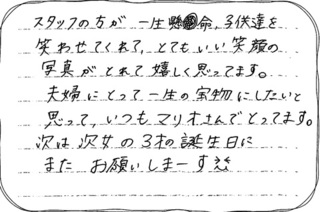 スタッフの方が一生懸命、子供達を
笑わせてくれて、とてもいい笑顔の
写真がとれて嬉しく思ってます。
夫婦にとって一生の宝物にしたいと
思って、いつもマリオさんでとってます。
次は次女の3才の誕生日に
また お願いしまーす